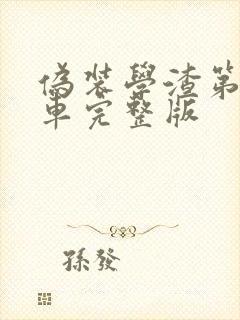 偽裝學渣第
車完整版
孫發